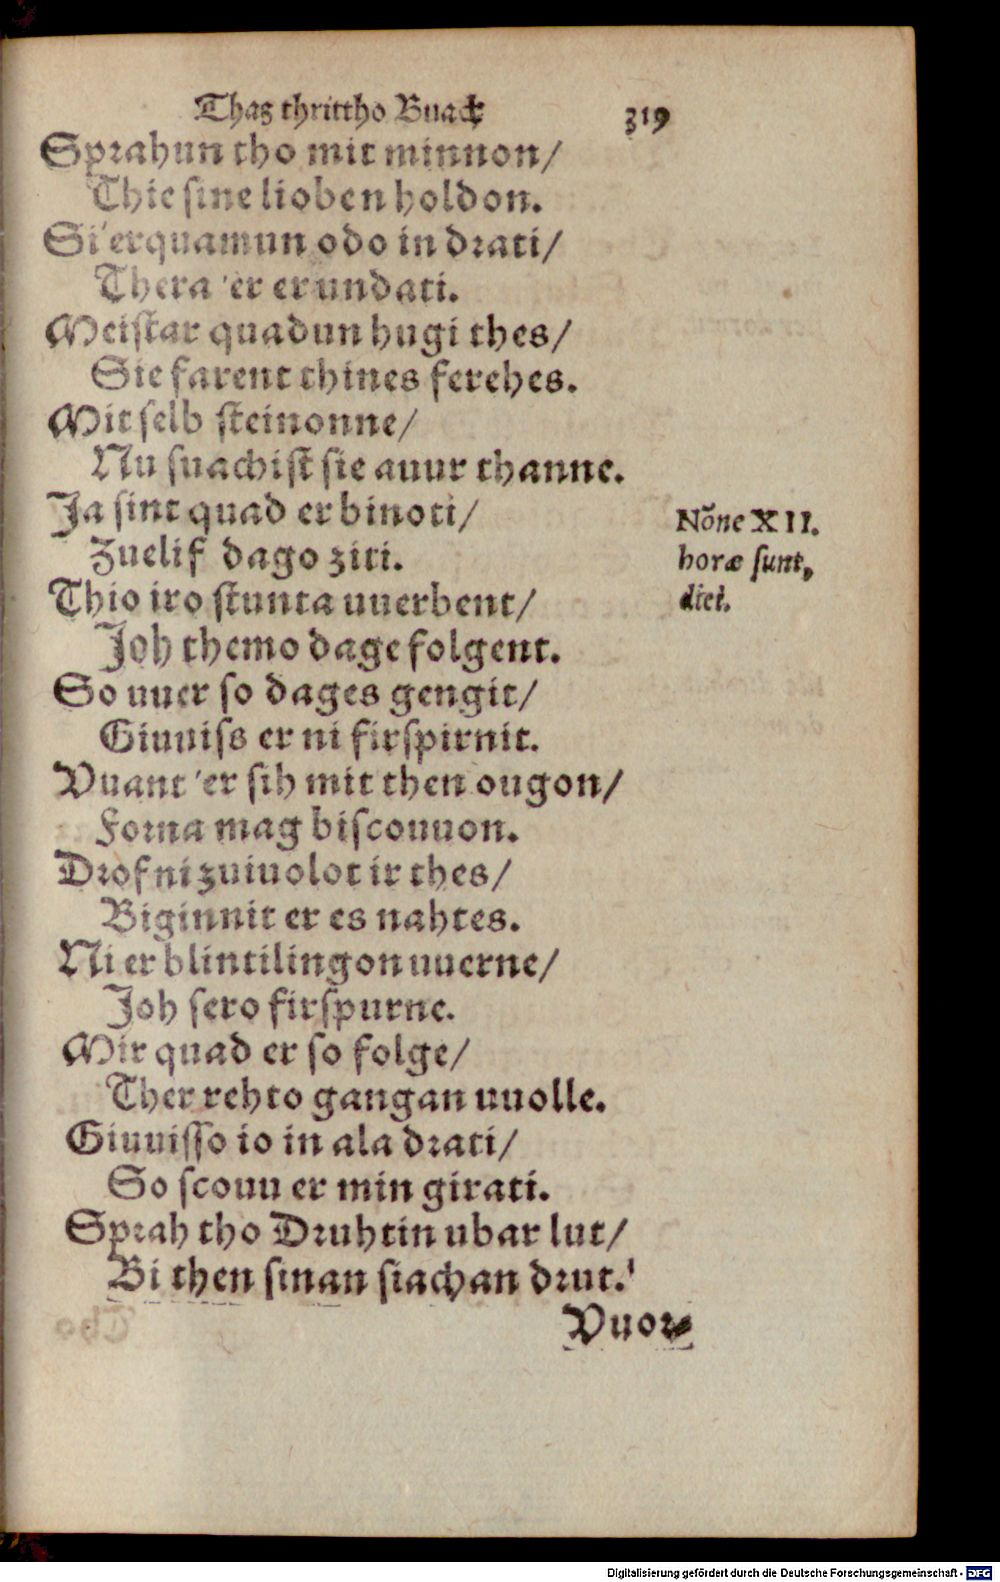 Thaz thrittho Buach 319
Sprahun tho mit minnon/
Thie sine lioben holdon.
Si'erquamun odo in drati/
Thera 'er er undati.
Meistar quadun hugi thes/
Sie farent thines ferehes.
Mit selb steinonne/
Nu suachist sie auur thanne.
Ja sint quad er binoti/
Zuelif dago ziti.
Thio iro stunta uuerbent/
Joh themo dage folgent.
So uuer so dages gengit/
Giuuiss er ni firspirnit.
Vuant 'er sih mit then ougon/
Forna mag biscouuon.
Drof ni zuiuolot ir thes/
Biginnit er es nahtes.
Ni er blintilingon uuerne/
Joh sero firspurne.
Mir quad er so folge/
Ther rehto gangan uuolle.
Giuuisso io in ala drati/
So scouu er min girati.
Sprah tho Druhtin ubar lut/
Bi then sinan siachan drut.
Vuor-
Nõne XII.
horæ sunt,
diei.
Digitalisierung gefördert durch die Deutsche Forschungsgemeinschaft - DFG